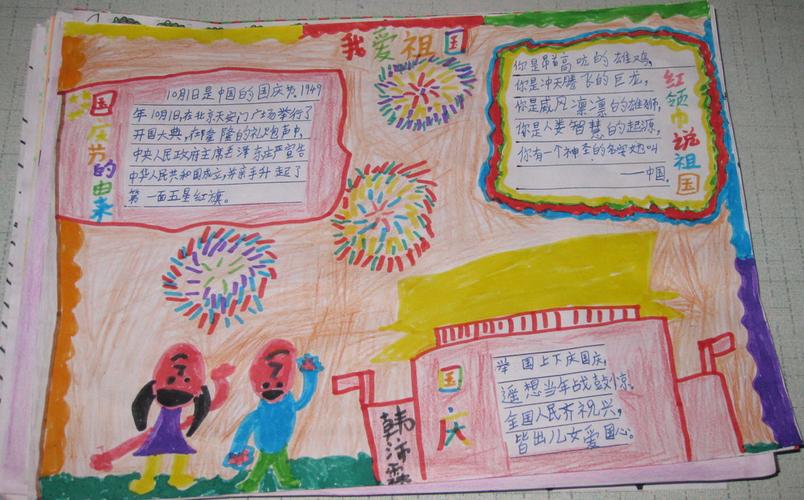 我爱祖国
国庆节的由来
10月1日是中国的国庆节,1949
年10月1日,在北京天安门广场举行了
开国大典,在隆隆的礼炮声中,
中央人民政府主席毛泽东庄严宣告
中华人民共和国成立,并亲手升起了
第一面五星红旗。
红领巾说祖国
你是昂首高吭的雄鸡,
你是冲天腾飞的巨龙,
你是威风凛凛的雄狮,
你是人类智慧的起源,
你有一个神圣的名字
叫
——中国。
国庆
举国上下庆国庆,
遥想当年战鼓惊。
全国人民齐祝兴,
皆出儿女爱国心。
韩沛霖